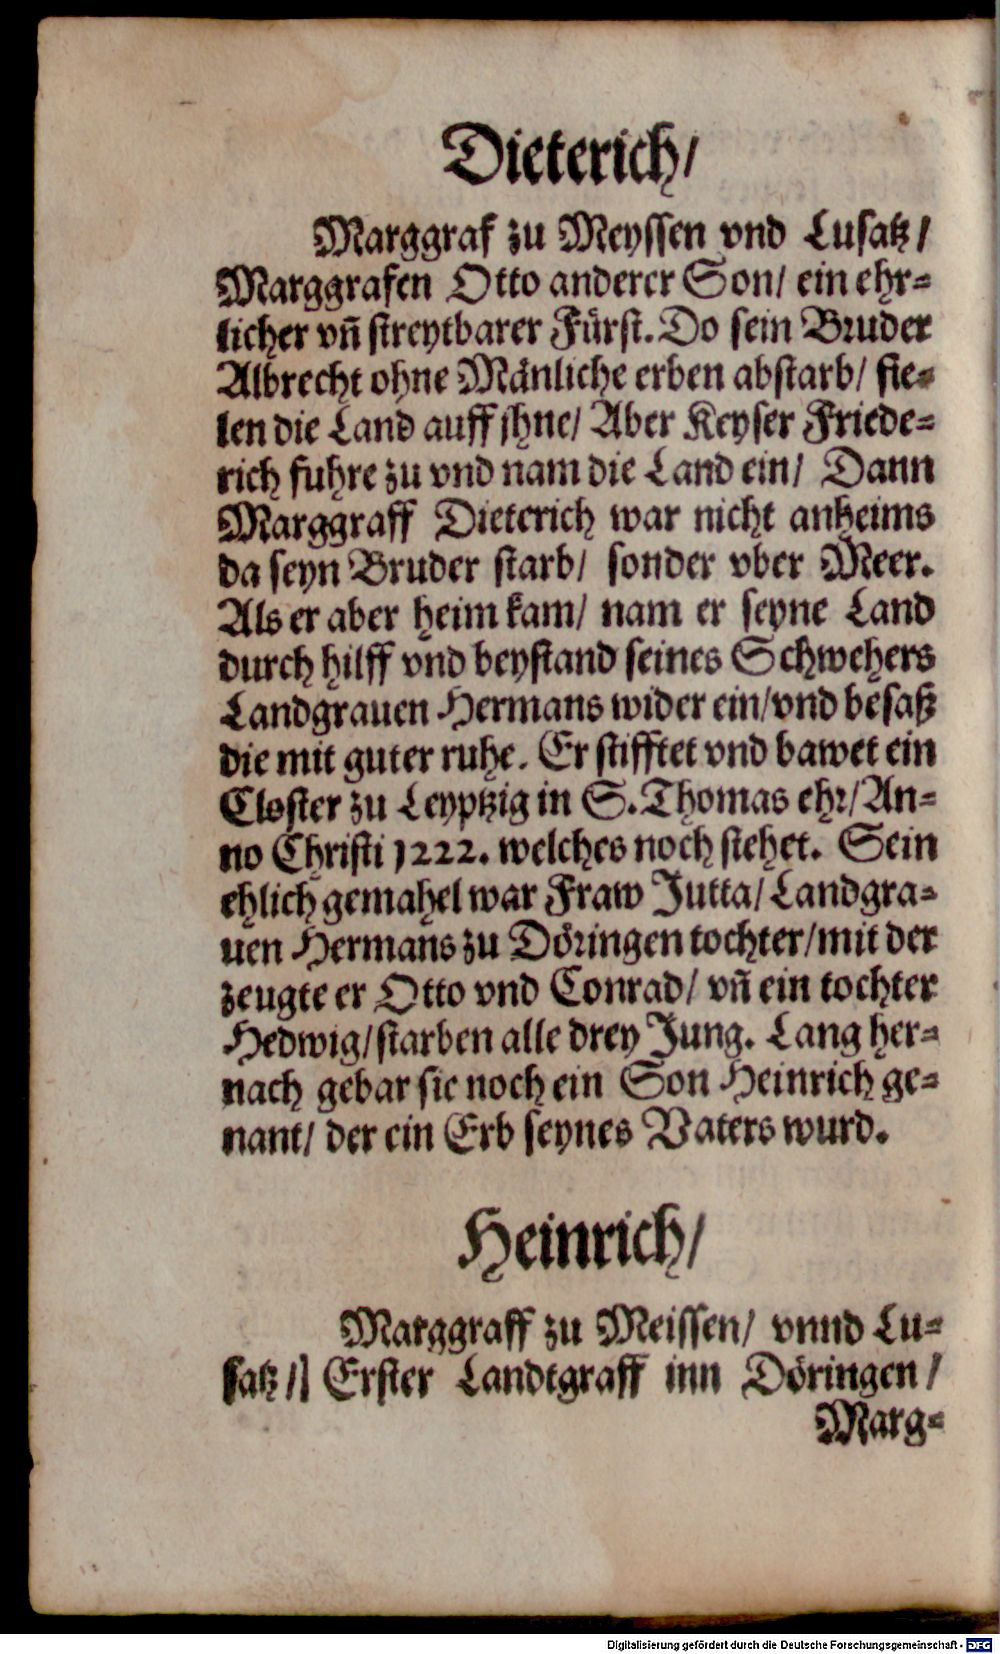 Dieterich/
Marggraf zu Meyssen vnd Lusatz/
Marggrafen Otto anderer Son/ ein ehr-
licher vn̄ streytbarer Fürst. Do sein Bruder
Albrecht ohne Mänliche erben abstarb/ fie-
len die Land auff jhne/ Aber Keyser Friede-
rich fuhre zu vnd nam die Land ein/ Dann
Marggraff Dieterich war nicht anheims
da seyn Bruder starb/ sonder vber Meer.
Als er aber heim kam/ nam er seyne Land
durch hilff vnd beystand seines Schwehers
Landgrauen Hermans wider ein/vnd besaß
die mit guter ruhe. Er stifftet vnd bawet ein
Closter zu Leyptzig in S. Thomas ehr/An-
no Christi 1222. welches noch stehet. Sein
ehlich gemahel war Fraw Jutta/ Landgra-
uen Hermans zu Döringen tochter/mit der
zeugte er Otto vnd Conrad/ vn̄ ein tochter
Hedwig/starben alle drey Jung. Lang her-
nach gebar sie noch ein Son Heinrich ge-
nant/ der ein Erb seynes Vaters wurd.
Heinrich/
Marggraff zu Meissen/ vnnd Lu-
satz/] Erster Landtgraff inn Döringen/
Marg-
Digitalisierung gefördert durch die Deutsche Forschungsgemeinschaft - DFG